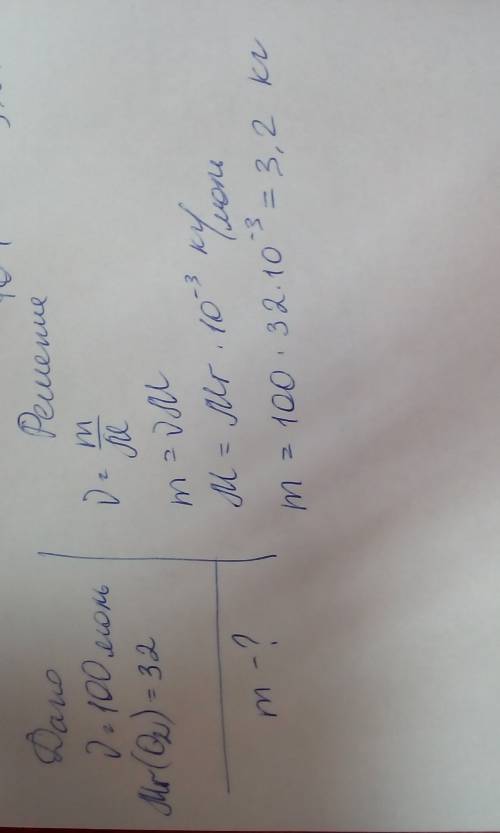 Дано
ν = 100 моль
Mr(O₂) = 32
m - ?
Решение
ν = m/M
m = νM
M = Mr · 10⁻³ кг/моль
m = 100 · 32 · 10⁻³ = 3,2 кг